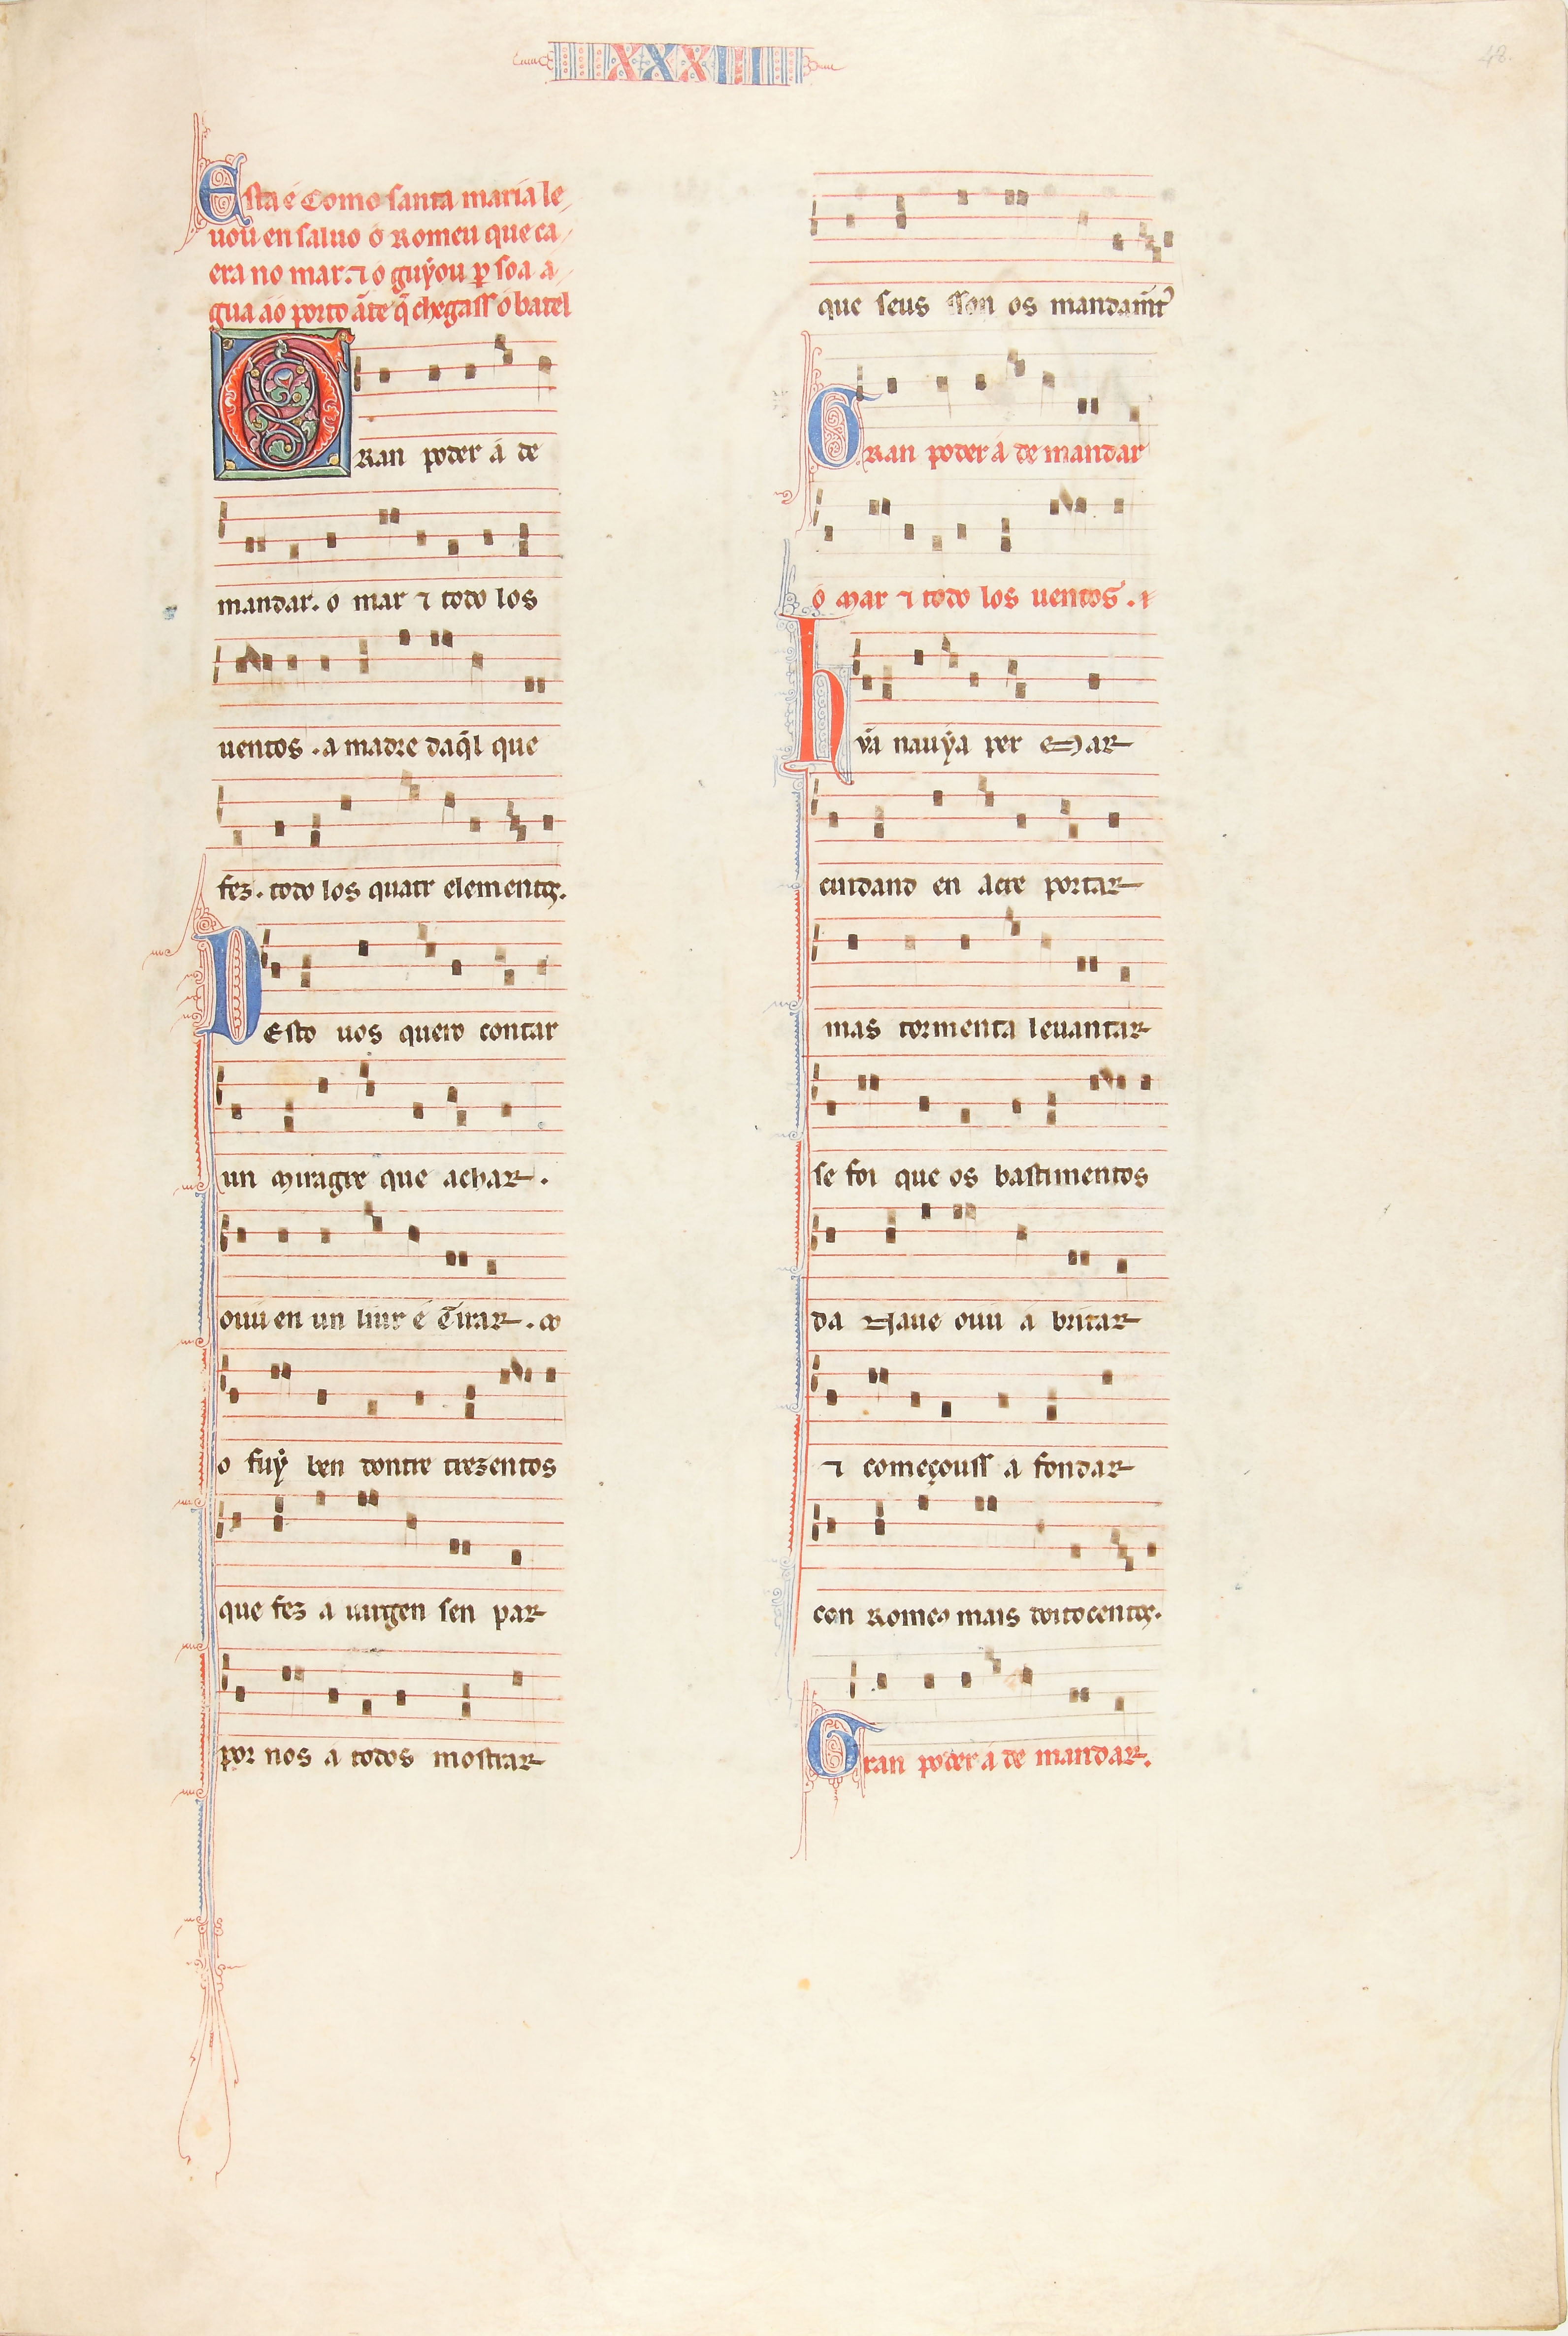 XXXIII
48
Esta é Como santa maria le
uou en saluo o Romeu que ca
era no mar. ⁊ o guẏou ꝑ soa a
gua ao porto ãte q̃ chegass o batel
GRan poder á de
mandar. o mar ⁊ todo los
uentos . a madre daq̃l que
fez . todo los quatr elementos.
DEsto uos quero contar
un miragre que achar .
ouu en un liur é tirar . o
o fuẏ ben dontre trezentos
que fez a uirgen sen par
por nos a todos mostrar
que seus sson os mandam̃t
GRan poder á de mandar
o mar ⁊ todo los uentos . ⁊
hũa nauẏa per Mar
cuidand en acre portar
mas tormenta leuantar
se foi que os bastimentos
da Naue ouu a britar
⁊ começouss a fondar
con Romeos mais doitocentos.
Gran poder á de mandar.